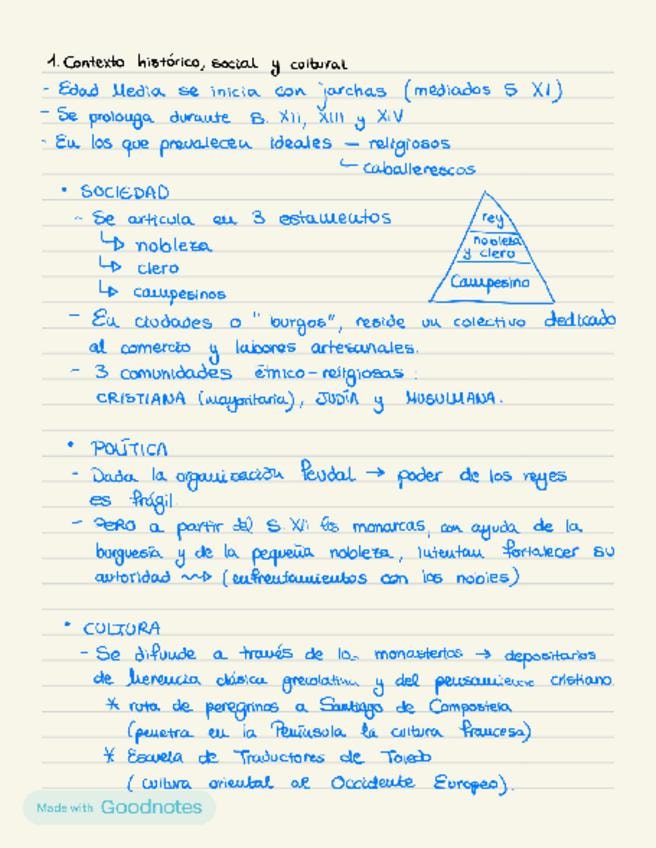 1. Contexto histórico, social y cultural
- Edad Media se inicia con jarchas (mediados S XI)
- Se prolonga durante S. XII, XIII y XIV
- En los que prevalecen ideales — religiosos
caballerescos
• SOCIEDAD
- Se articula en 3 estamentos
↳ nobleza
↳ clero
↳ campesinos
rey
nobleza
y clero
Campesino
- En ciudades o "burgos", reside un colectivo dedicado
al comercio y labores artesanales.
- 3 comunidades étnico-religiosas:
CRISTIANA (mayoritaria), JUDÍA y MUSULMANA.
• POLÍTICA
- Dada la organización feudal → poder de los reyes
es frágil
- PERO a partir del S. XII los monarcas, con ayuda de la
burguesía y de la pequeña nobleza, intentan fortalecer su
autoridad ⇝ (enfrentamientos con los nobles)
• CULTURA
- Se difunde a través de los monasterios → depositarios
de herencia clásica grecolatina y del pensamiento cristiano.
* ruta de peregrinos a Santiago de Compostela
(penetra en la Península la cultura francesa)
* Escuela de Traductores de Toledo
(cultura oriental al Occidente Europeo).
Made with Goodnotes